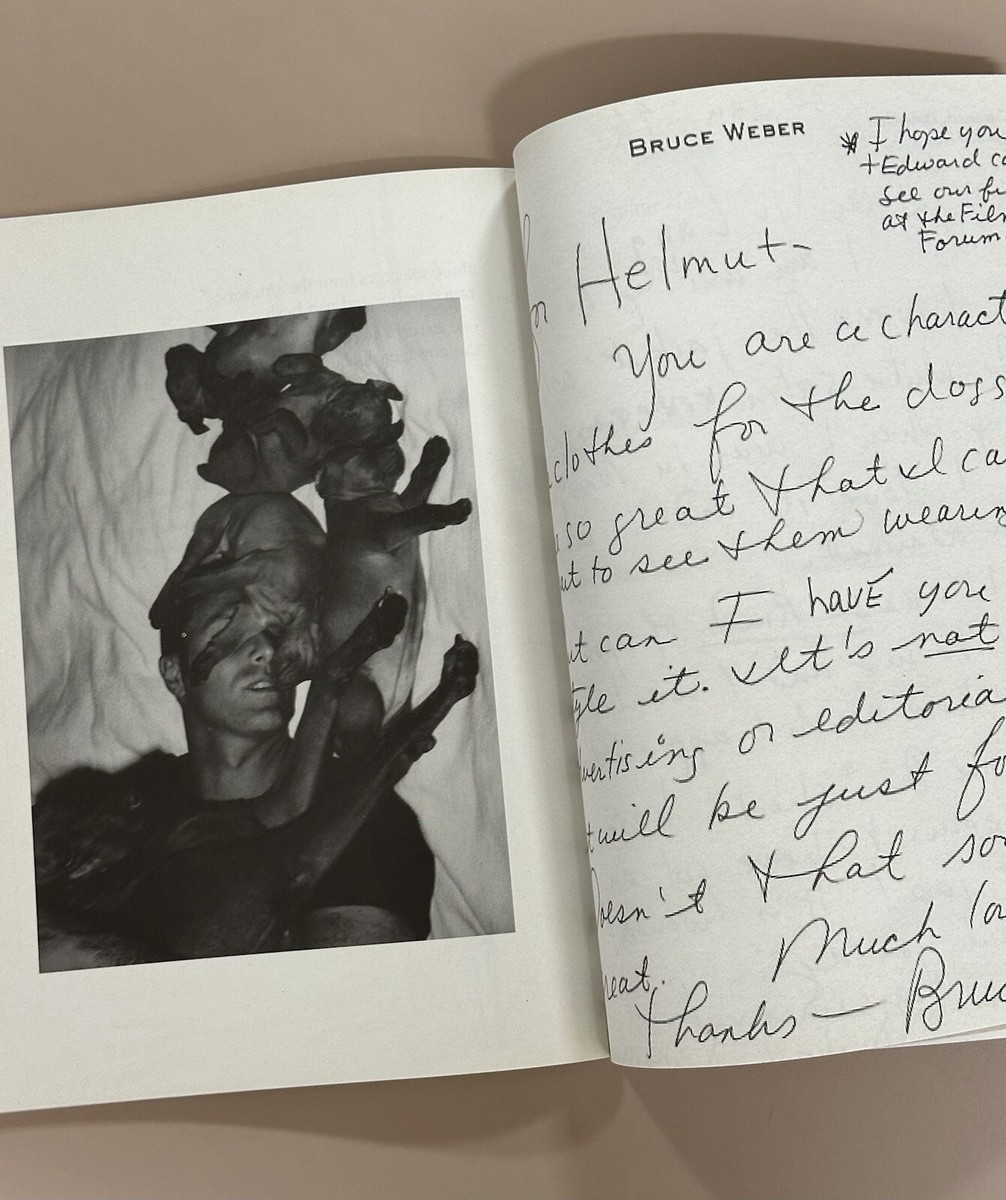 BRUCE WEBER
* I hope you
+ Edward ca
see our fi
at the Film
Forum
Helmut-
You are a charact
clothes for the dogs
so great that I ca
ut to see them wearin
t can I havE you
yle it. It's not
vertising or editoria
t will be just fo
oesn't that sou
reat. Much lo
Thanks — Bruc